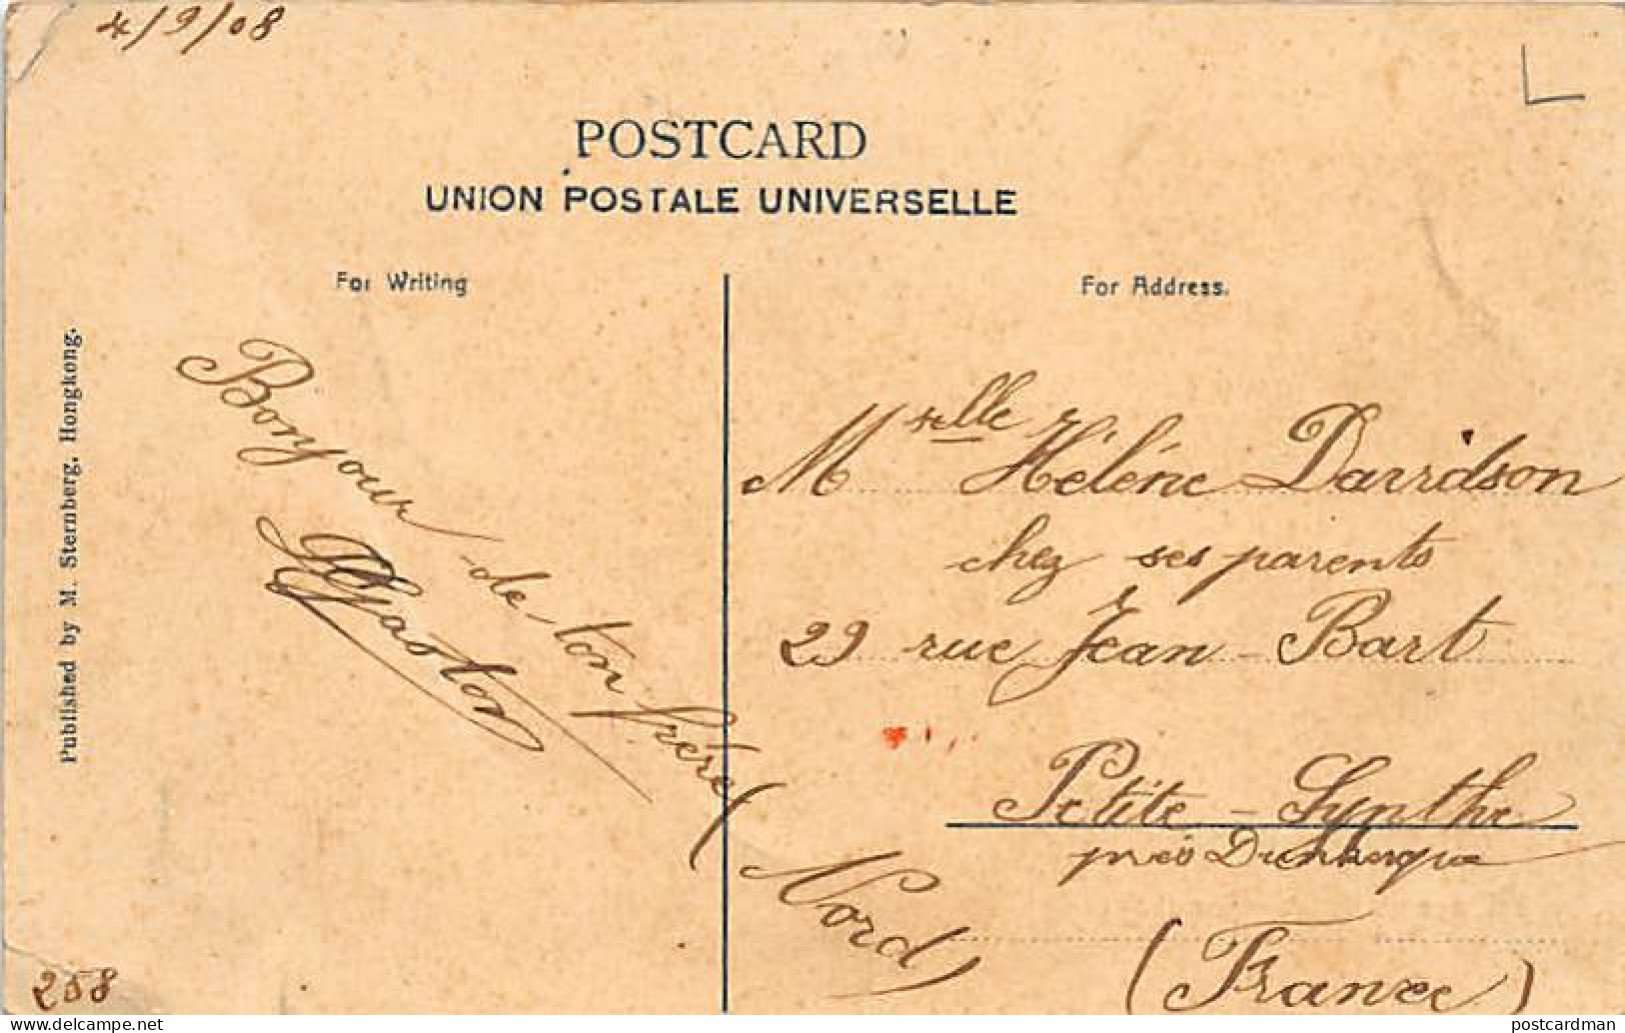 4/9/08
POSTCARD
UNION POSTALE UNIVERSELLE
For Writing
For Address.
Published by M. Sternberg, Hongkong.
Bonjour de ton frère
Gaston
Melle Hélène Davidson
chez ses parents
29 rue Jean-Bart
Petite-Synthe
près Dunkerque
(Nord)
(France)
258
delcampe.net
postcardman